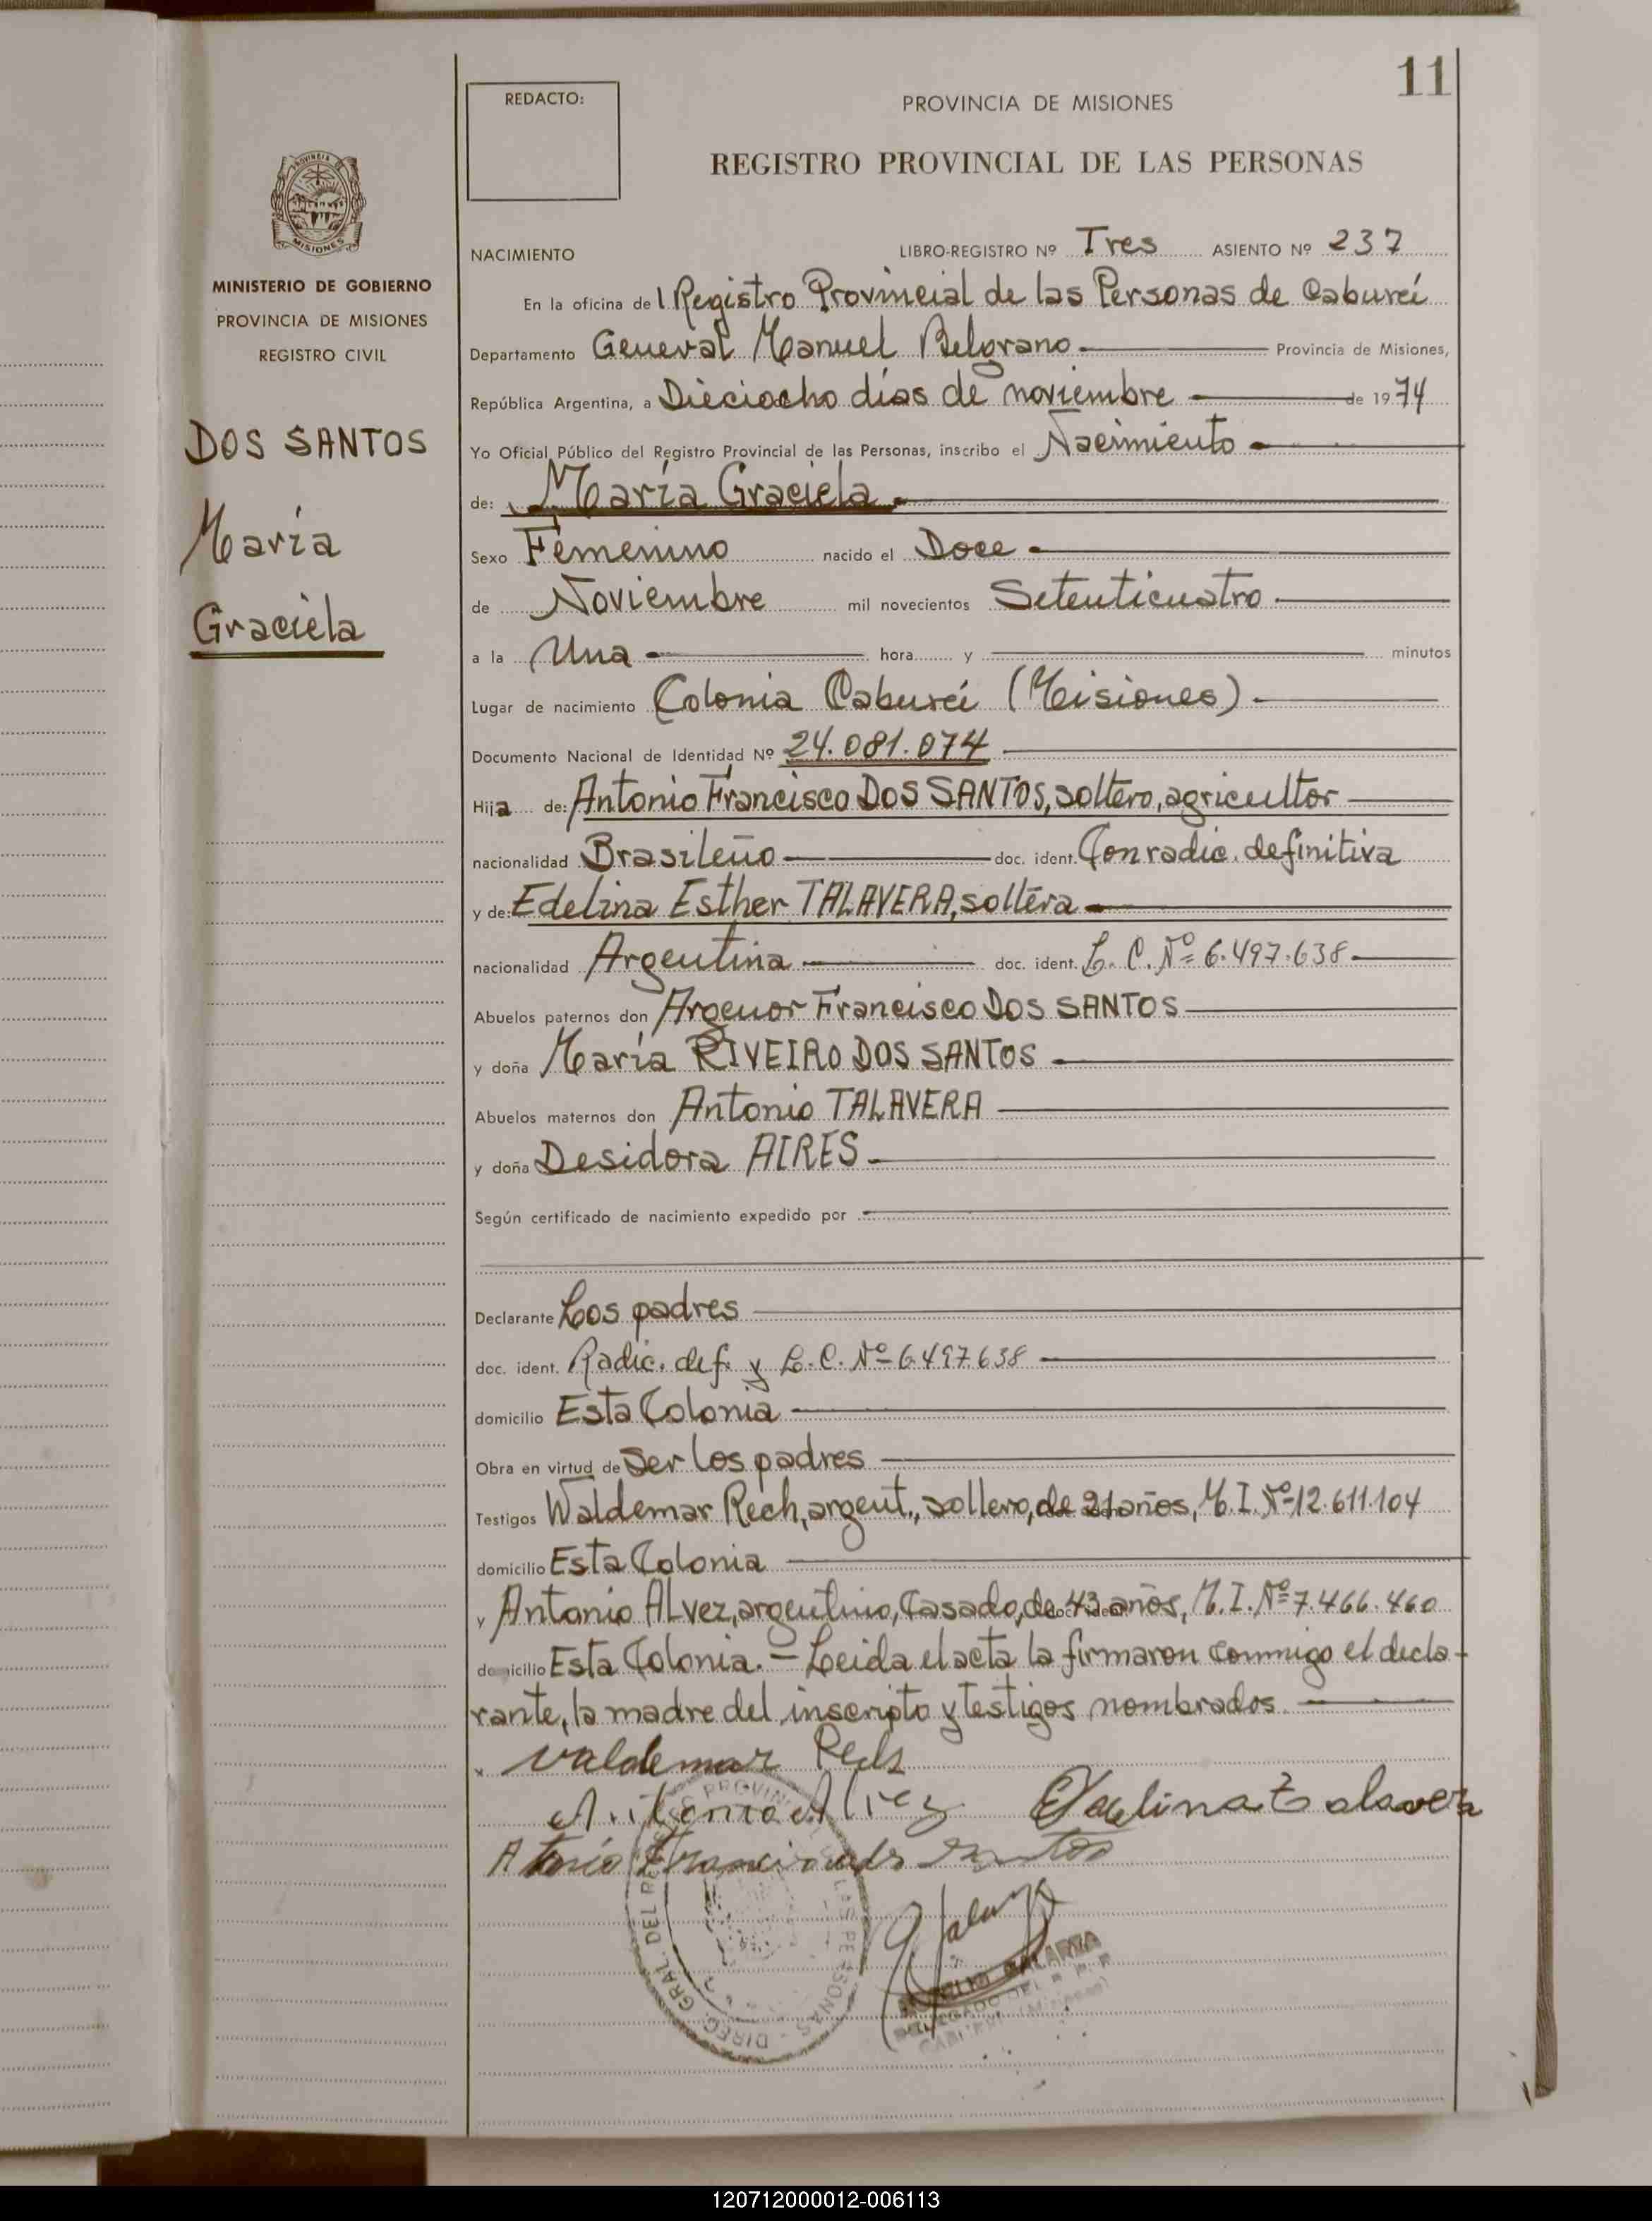 11
REDACTO:
PROVINCIA DE MISIONES
REGISTRO PROVINCIAL DE LAS PERSONAS
PROVINCIA DE
MISIONES
MINISTERIO DE GOBIERNO
PROVINCIA DE MISIONES
REGISTRO CIVIL
DOS SANTOS
María
Graciela
NACIMIENTO LIBRO-REGISTRO Nº Tres ASIENTO Nº 237
En la oficina del Registro Provincial de las Personas de Cabureí
Departamento General Manuel Belgrano Provincia de Misiones,
República Argentina, a Dieciocho días de noviembre de 1974
Yo Oficial Público del Registro Provincial de las Personas, inscribo el Nacimiento
de: María Graciela
Sexo Femenino nacido el Doce
de Noviembre mil novecientos Setenticuatro
a la Una hora y minutos
Lugar de nacimiento Colonia Cabureí (Misiones)
Documento Nacional de Identidad Nº 24.081.074
Hija de: Antonio Francisco DOS SANTOS, soltero, agricultor
nacionalidad Brasileño doc. ident. Con radic. definitiva
y de: Edelina Esther TALAVERA, soltera
nacionalidad Argentina doc. ident. L. C. Nº 6.497.638
Abuelos paternos don Argenor Francisco DOS SANTOS
y doña María RIVEIRO DOS SANTOS
Abuelos maternos don Antonio TALAVERA
y doña Desidora AIRES
Según certificado de nacimiento expedido por
Declarante Los padres
doc. ident. Radic. def. y L. C. Nº 6497638
domicilio Esta Colonia
Obra en virtud de Ser los padres
Testigos Waldemar Rech, argent., soltero, de 21 años, M. I. Nº 12.611.104
domicilio Esta Colonia
y Antonio ALvez, argentino, Casado, de 43 años, M. I. Nº 7.466.460
domicilio Esta Colonia. - Leida el acta la firmaron conmigo el decla-
rante, la madre del inscripto y testigos nombrados
Valdemar Rech
Antonio Alvez Edelina Talavera
Francisco santos
DIREC. GRAL. DEL LAS PERSONAS
GALARZA
DELEGADO DEL R. P. P.
CABUREI (Misiones)
120712000012-006113